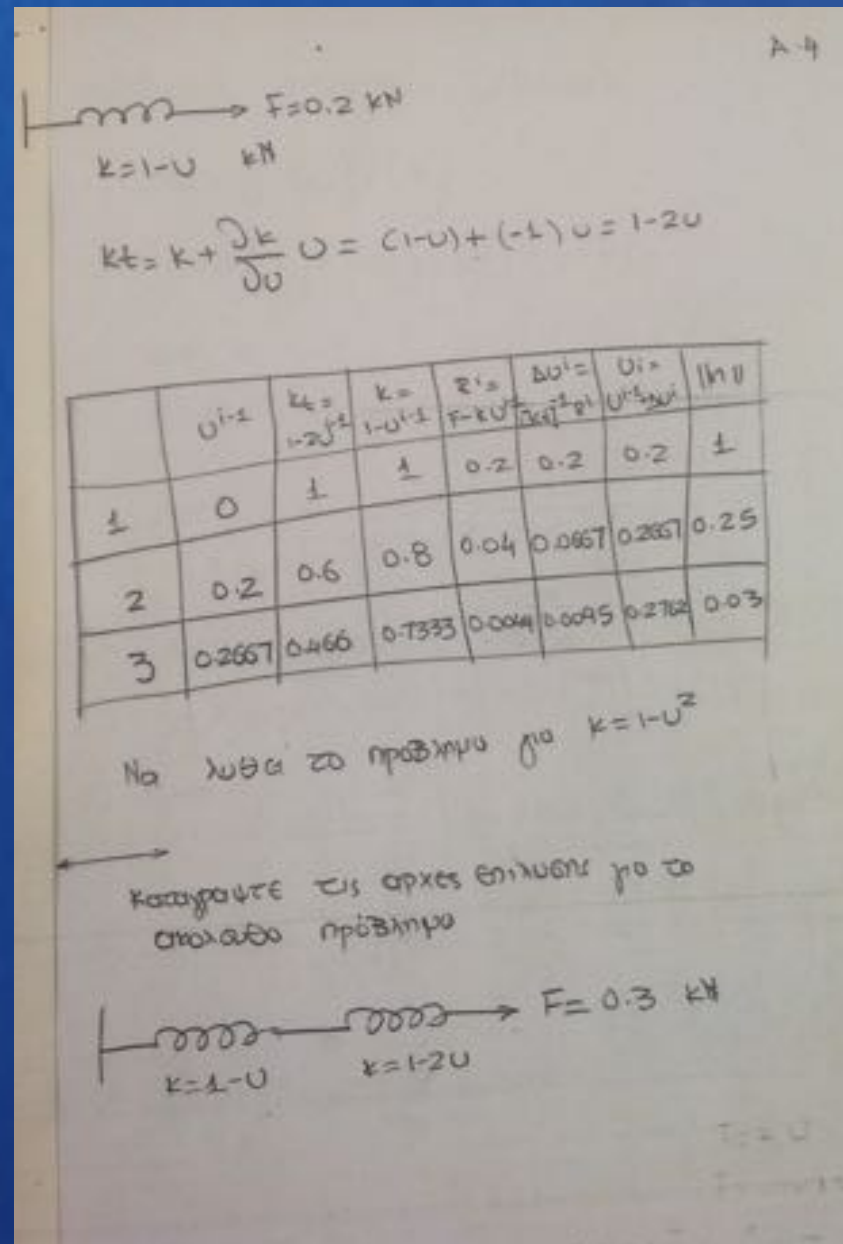 A-4
F=0.2 kN
k=1-U kN
kt= k+ ∂k/∂U U = (1-U)+(-1)U = 1-2U
U^i-1 kt= 1-2U^i-1 k= 1-U^i-1 R^i= F-kU^i-1 ΔU^i= [kt]^-1 R^i Ui= U^i-1+ΔU^i
1 0 1 1 0.2 0.2 0.2 1
2 0.2 0.6 0.8 0.04 0.0667 0.2667 0.25
3 0.2667 0.466 0.7333 0.0044 0.0095 0.2762 0.03
Να λυθεί το πρόβλημα για k=1-U²
Καταγράψτε τις αρχές επίλυσης για το
ακόλουθο πρόβλημα
F= 0.3 kN
k=1-U k=1-2U